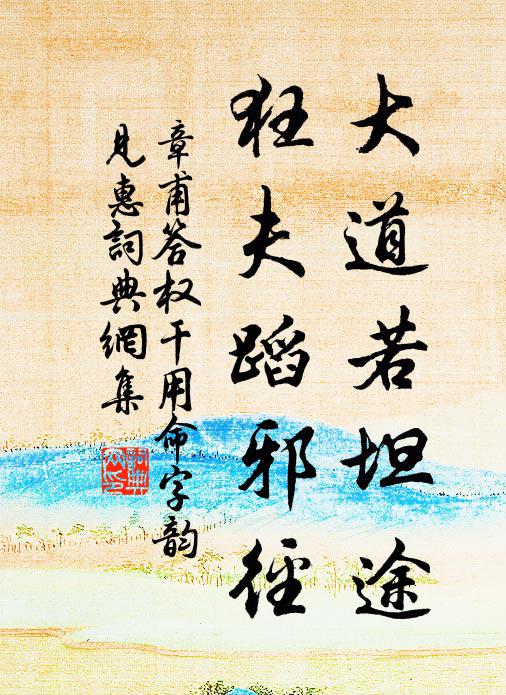 大道若坦途
狂夫蹈邪徑
章甫答权干用命字韵
見惠詞典網集